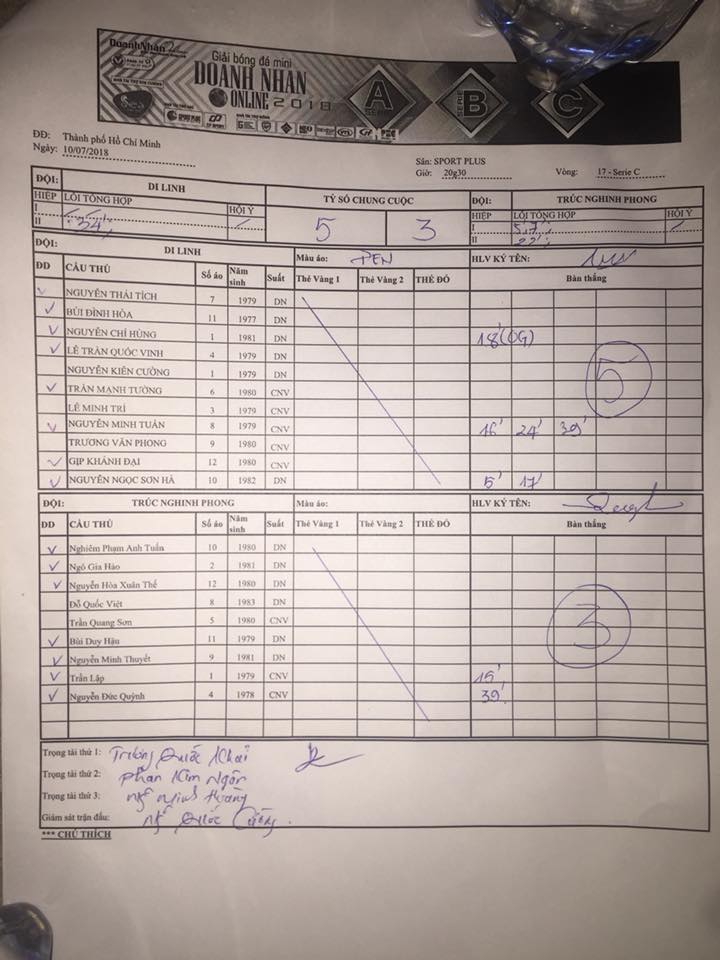 DoanhNhan
Giải bóng đá mini
DOANH NHAN
ONLINE 2018
SERIE A
SERIE B
SERIE C
ĐĐ: Thành phố Hồ Chí Minh
Ngày: 10/07/2018
Sân: SPORT PLUS
Giờ: 20g30 Vòng: 17 - Serie C
ĐỘI: DI LINH TỶ SỐ CHUNG CUỘC ĐỘI: TRÚC NGHINH PHONG
HIỆP LỖI TỔNG HỢP HỘI Ý 5 3 HIỆP LỖI TỔNG HỢP HỘI Ý
I I
II 34' II 22'
ĐỘI: DI LINH Màu áo: ĐEN HLV KÝ TÊN:
ĐD CẦU THỦ Số áo Năm sinh Suất Thẻ Vàng 1 Thẻ Vàng 2 THẺ ĐỎ Bàn thắng
✓ NGUYỄN THÁI TÍCH 7 1979 DN
✓ BÙI ĐÌNH HÒA 11 1977 DN
✓ NGUYỄN CHÍ HÙNG 1 1981 DN 18'(OG)
✓ LÊ TRẦN QUỐC VINH 4 1979 DN
NGUYỄN KIÊN CƯỜNG 1 1979 DN 5
✓ TRẦN MẠNH TƯỜNG 6 1980 CNV
LÊ MINH TRÍ 3 1979 CNV
✓ NGUYỄN MINH TUẤN 8 1979 CNV 16' 24' 39'
TRƯƠNG VĂN PHONG 9 1980 CNV
✓ GỊP KHÁNH ĐẠI 12 1980 CNV
✓ NGUYỄN NGỌC SƠN HÀ 10 1982 DN 5' 17'
ĐỘI: TRÚC NGHINH PHONG Màu áo: HLV KÝ TÊN:
ĐD CẦU THỦ Số áo Năm sinh Suất Thẻ Vàng 1 Thẻ Vàng 2 THẺ ĐỎ Bàn thắng
✓ Nghiêm Phạm Anh Tuấn 10 1980 DN
✓ Ngô Gia Hào 2 1981 DN
✓ Nguyễn Hòa Xuân Thế 12 1980 DN
Đỗ Quốc Việt 8 1983 DN
Trần Quang Sơn 5 1980 CNV 3
✓ Bùi Duy Hậu 11 1979 DN
✓ Nguyễn Minh Thuyết 9 1981 DN
✓ Trần Lập 1 1979 CNV 15'
✓ Nguyễn Đức Quỳnh 4 1978 CNV 39'
Trọng tài thứ 1: Trương Quốc Khải
Trọng tài thứ 2: Phan Kim Ngân
Trọng tài thứ 3: Ng Minh Hoàng
Giám sát trận đấu: Ng Quốc Cường
*** CHÚ THÍCH